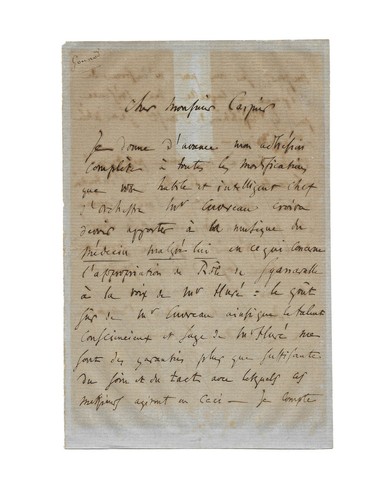 Gounod
Cher Monsieur
Je donne d'avance mon adhésion
complète à toutes les modifications
que votre habile et intelligent chef
d'orchestre Mr croira
devoir apporter à la musique du
Médecin malgré lui en ce qui concerne
l'appropriation du Rôle de Sganarelle
à la voix de Mr : le goût
sûr de Mr ainsi que le talent
consciencieux et sage de Mr me
sont des garanties plus que suffisantes
du soin et du tact avec lesquels ces
messieurs agiront en ceci — Je compte